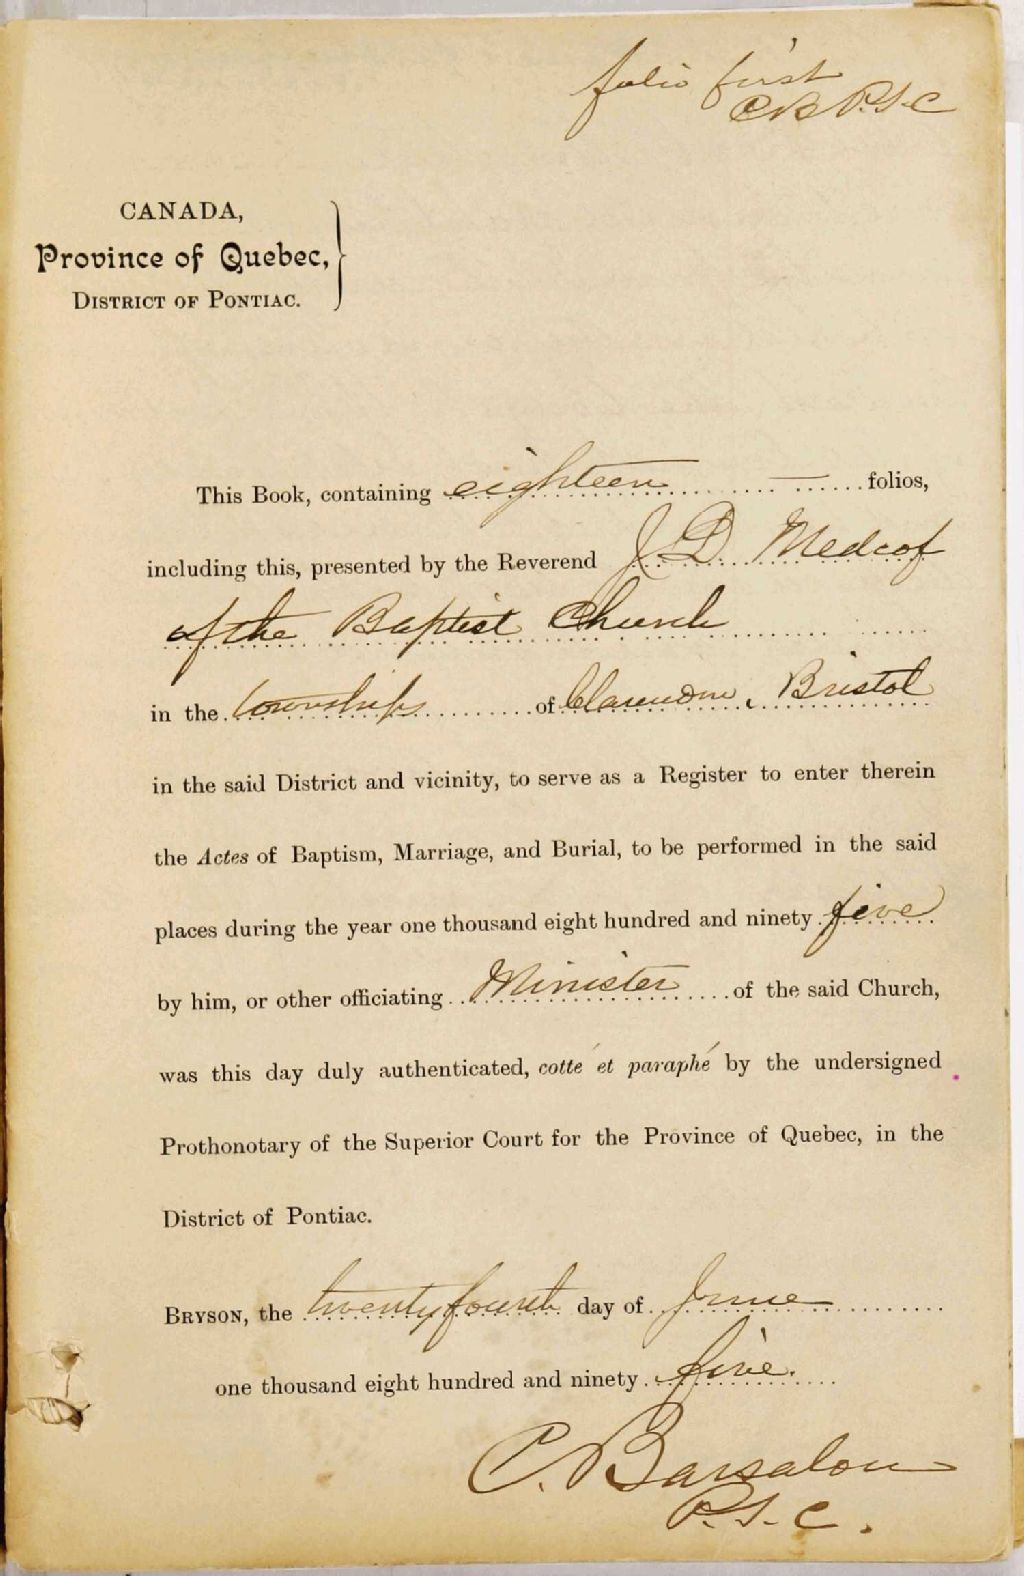 folio first
CB P.S.C
CANADA,
Province of Quebec,
DISTRICT OF PONTIAC.
This Book, containing eighteen folios,
including this, presented by the Reverend J. D. Medcof
of the Baptist Church
in the townships of Clarendon, Bristol
in the said District and vicinity, to serve as a Register to enter therein
the Actes of Baptism, Marriage, and Burial, to be performed in the said
places during the year one thousand eight hundred and ninety five
by him, or other officiating Minister of the said Church,
was this day duly authenticated, cotté et paraphé by the undersigned
Prothonotary of the Superior Court for the Province of Quebec, in the
District of Pontiac.
BRYSON, the twenty fourth day of June
one thousand eight hundred and ninety five.
C. Barsalou
P.S.C.